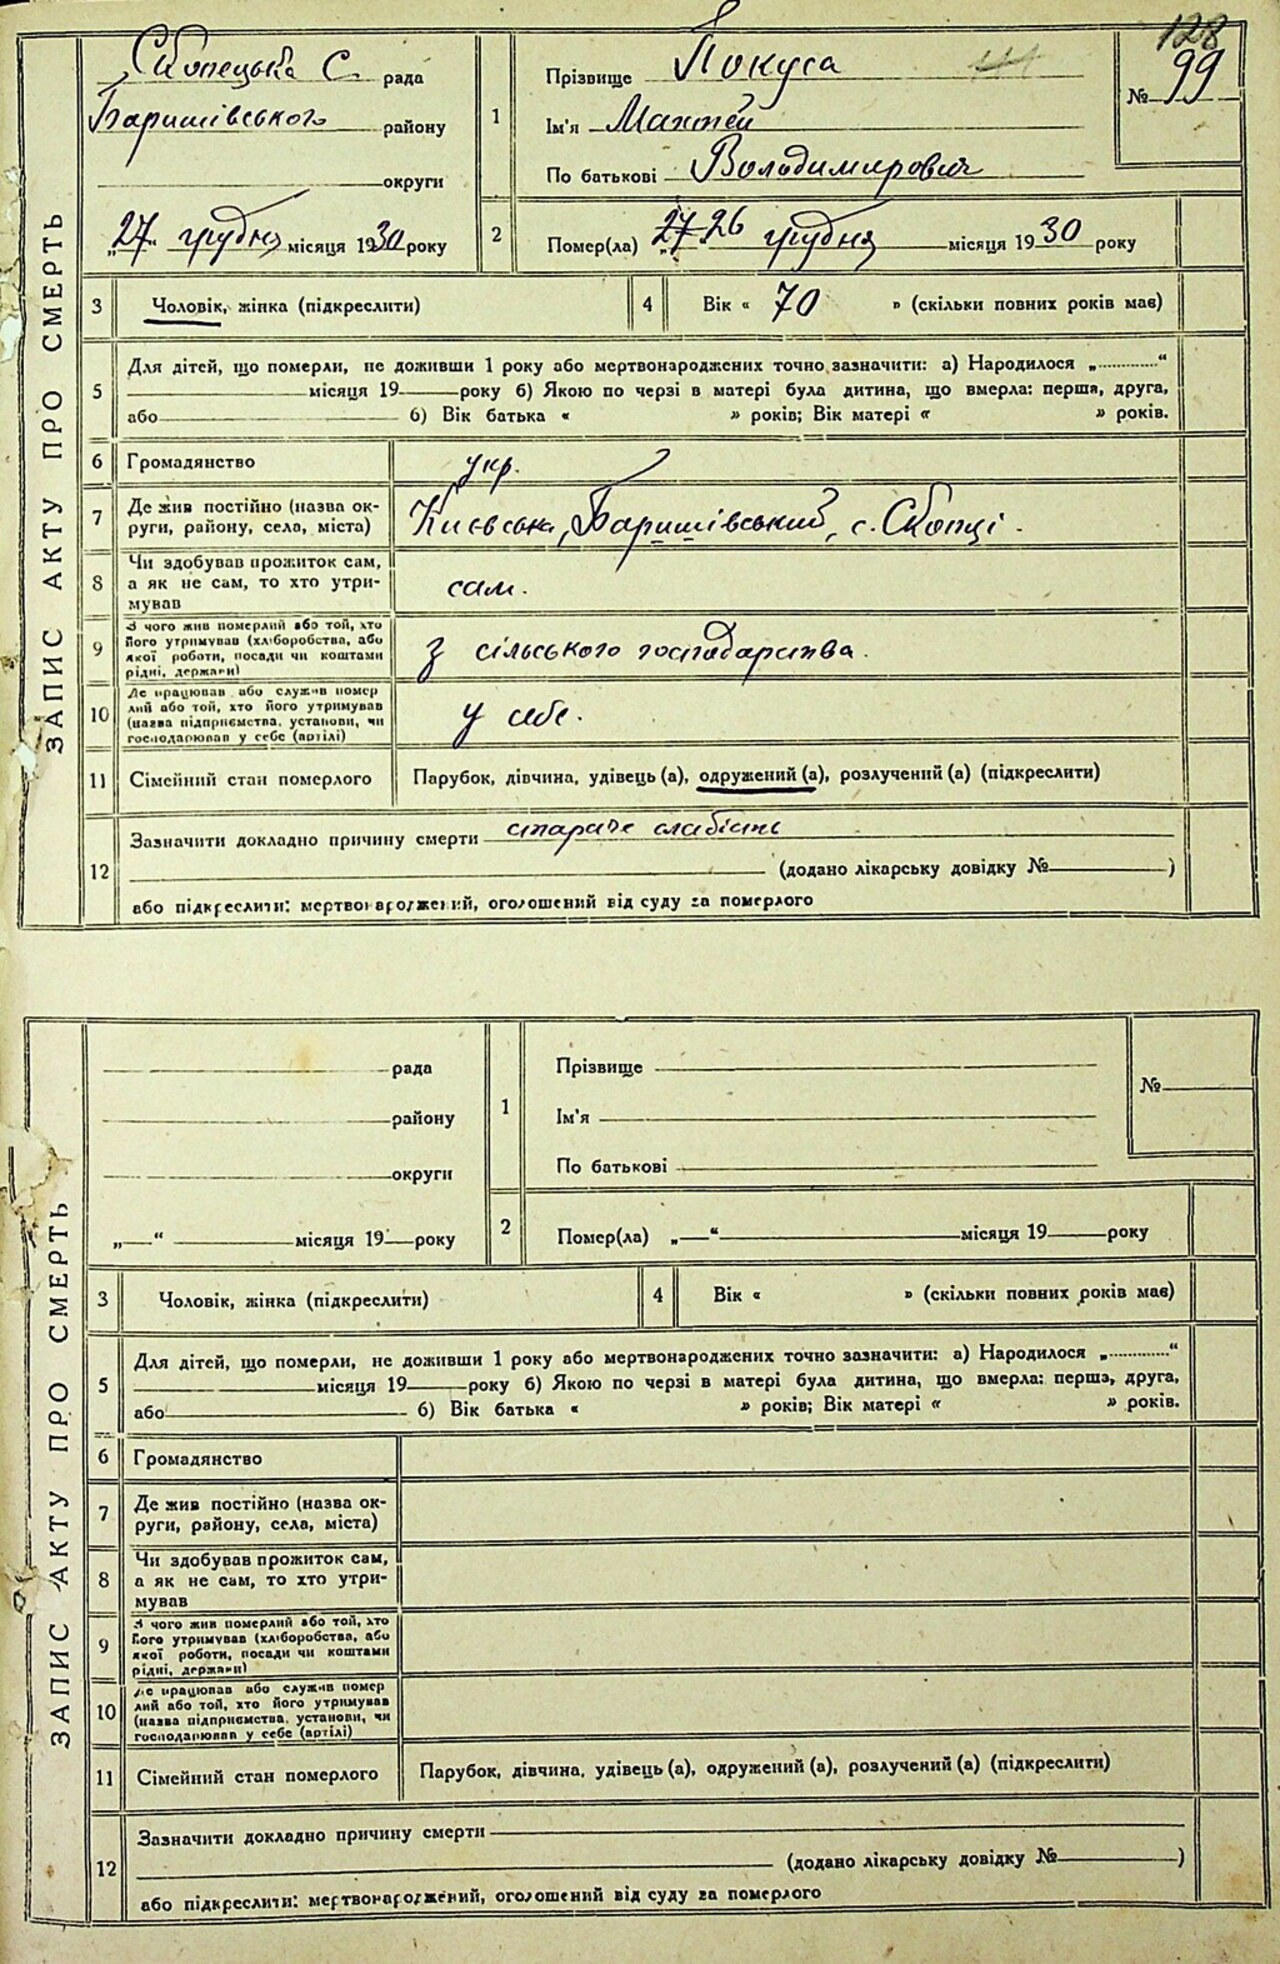 128
ЗАПИС АКТУ ПРО СМЕРТЬ
Скопецька С. рада
Баришівського району
округи
„27“ грудня місяця 1930 року
1
Прізвище Покуса
Ім'я Махтей
По батькові Володимирович
№ 99
2
Помер(ла) „27“ 26 грудня місяця 1930 року
3 Чоловік, жінка (підкреслити)
4 Вік « 70 » (скільки повних років має)
5
Для дітей, що померли, не доживши 1 року або мертвонароджених точно зазначити: а) Народилося „ “
місяця 19 року б) Якою по черзі в матері була дитина, що вмерла: перша, друга,
або б) Вік батька « » років; Вік матері « » років.
6 Громадянство укр.
7 Де жив постійно (назва ок-
руги, району, села, міста) Києвська, Баришівський, с. Скопці.
8 Чи здобував прожиток сам,
а як не сам, то хто утри-
мував сам.
9 З чого жив померлий або той, хто
його утримував (хліборобства, або
якої роботи, посади чи коштами
рідні, держави) з сільського господарства.
10 Де працював або служив помер
лий або той, хто його утримував
(назва підприємства, установи, чи
господарював у себе (артілі) у себе.
11 Сімейний стан померлого Парубок, дівчина, удівець (а), одружений (а), розлучений (а) (підкреслити)
12 Зазначити докладно причину смерти стараче слабість
(додано лікарську довідку № )
або підкреслити: мертвонароджений, оголошений від суду за померлого
ЗАПИС АКТУ ПРО СМЕРТЬ
рада
району
округи
„ “ місяця 19 року
1
Прізвище
Ім'я
По батькові
№
2
Помер(ла) „ “ місяця 19 року
3 Чоловік, жінка (підкреслити)
4 Вік « » (скільки повних років має)
5
Для дітей, що померли, не доживши 1 року або мертвонароджених точно зазначити: а) Народилося „ “
місяця 19 року б) Якою по черзі в матері була дитина, що вмерла: перша, друга,
або б) Вік батька « » років; Вік матері « » років.
6 Громадянство
7 Де жив постійно (назва ок-
руги, району, села, міста)
8 Чи здобував прожиток сам,
а як не сам, то хто утри-
мував
9 З чого жив померлий або той, хто
його утримував (хліборобства, або
якої роботи, посади чи коштами
рідні, держави)
10 Де працював або служив помер
лий або той, хто його утримував
(назва підприємства, установи, чи
господарював у себе (артілі)
11 Сімейний стан померлого Парубок, дівчина, удівець (а), одружений (а), розлучений (а) (підкреслити)
12 Зазначити докладно причину смерти
(додано лікарську довідку № )
або підкреслити: мертвонароджений, оголошений від суду за померлого